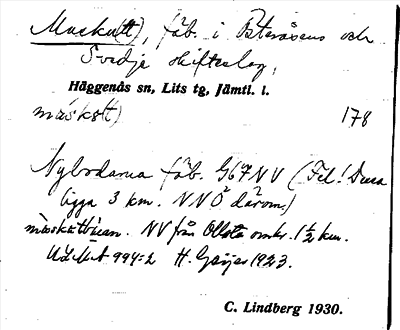 Muska(tt), fäb. i Österåsens och
Svedje skifteslag,
Häggenås sn, Lits tg, Jämtl. l.
måskɑt(t) 178
Nybodarna fäb. G67NV (Fel! Dessa
ligga 3 km. NNÖ därom.)
NV från Ollsta omkr. 1½ km.
ULMA 994:2 H. Geijer 1923.
C. Lindberg 1930.